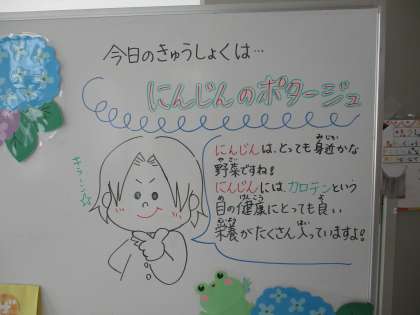 今日のきゅうしょくは…
にんじんのポタージュ
キラーン☆
にんじんは、とっても身近な
野菜ですね!
にんじんには、カロテンという
目の健康にとっても良い
栄養がたくさん入っていますよ!